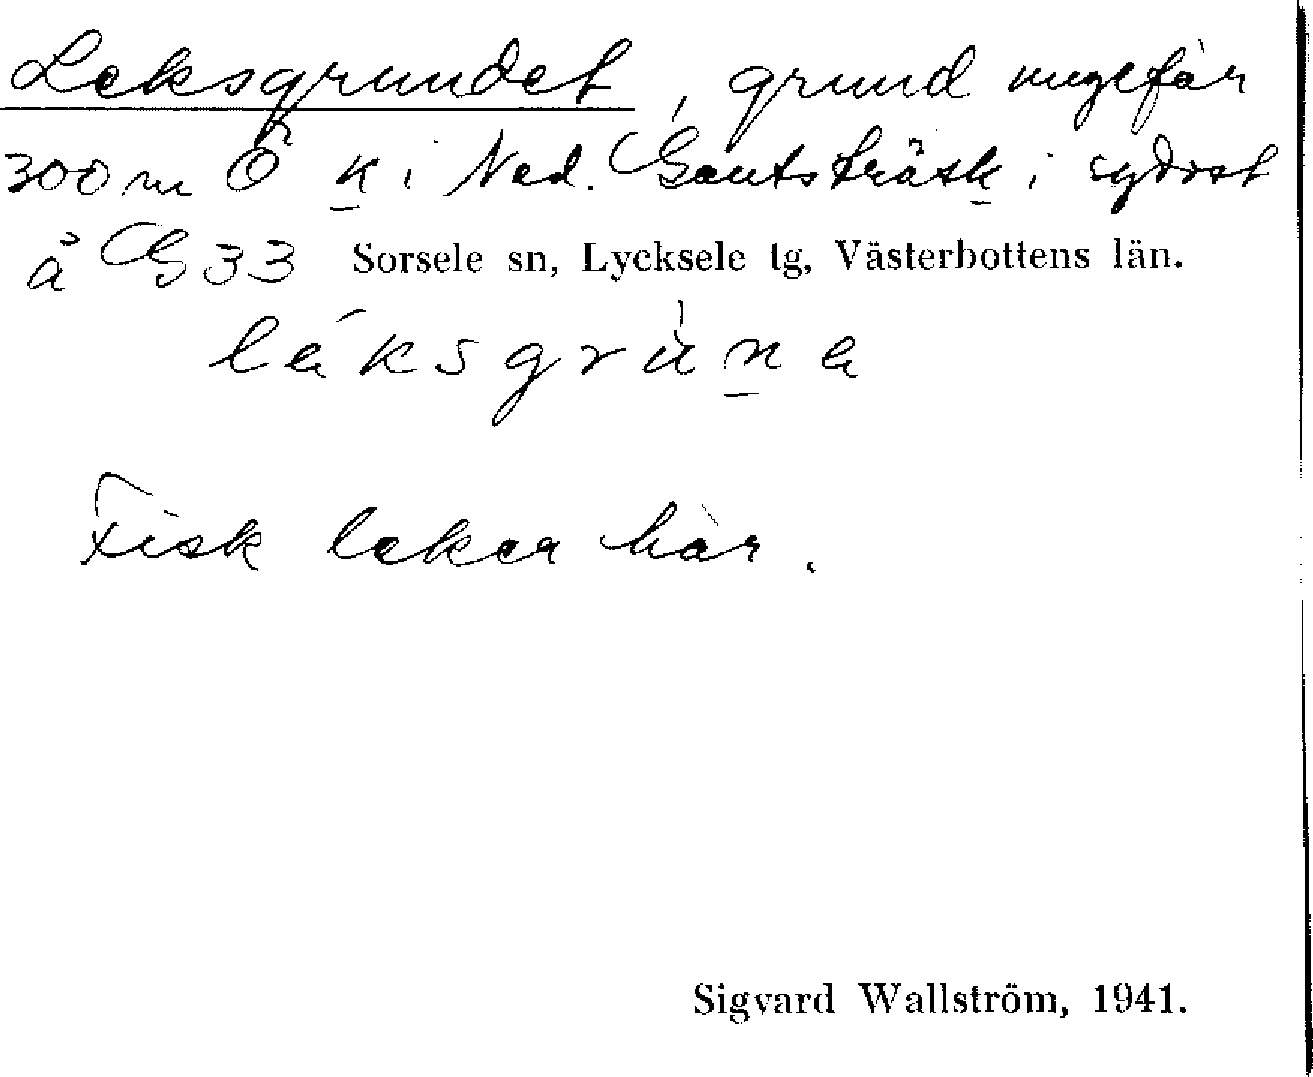 Leksgrundet, grund ungefär
300 m Ö k i Ned. Gautsträsk i sydost
å G 33 Sorsele sn, Lycksele tg, Västerbottens län.
léksgrùna
Fisk leker här.
Sigvard Wallström, 1941.